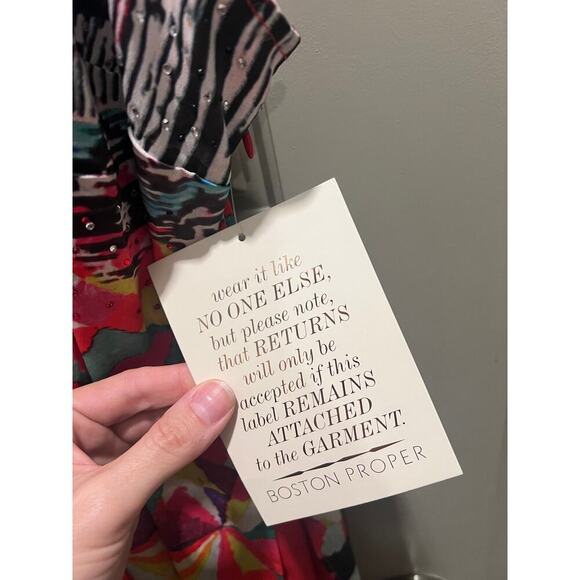 wear it like
NO ONE ELSE,
but please note,
that RETURNS
will only be
accepted if this
label REMAINS
ATTACHED
to the GARMENT.
BOSTON PROPER